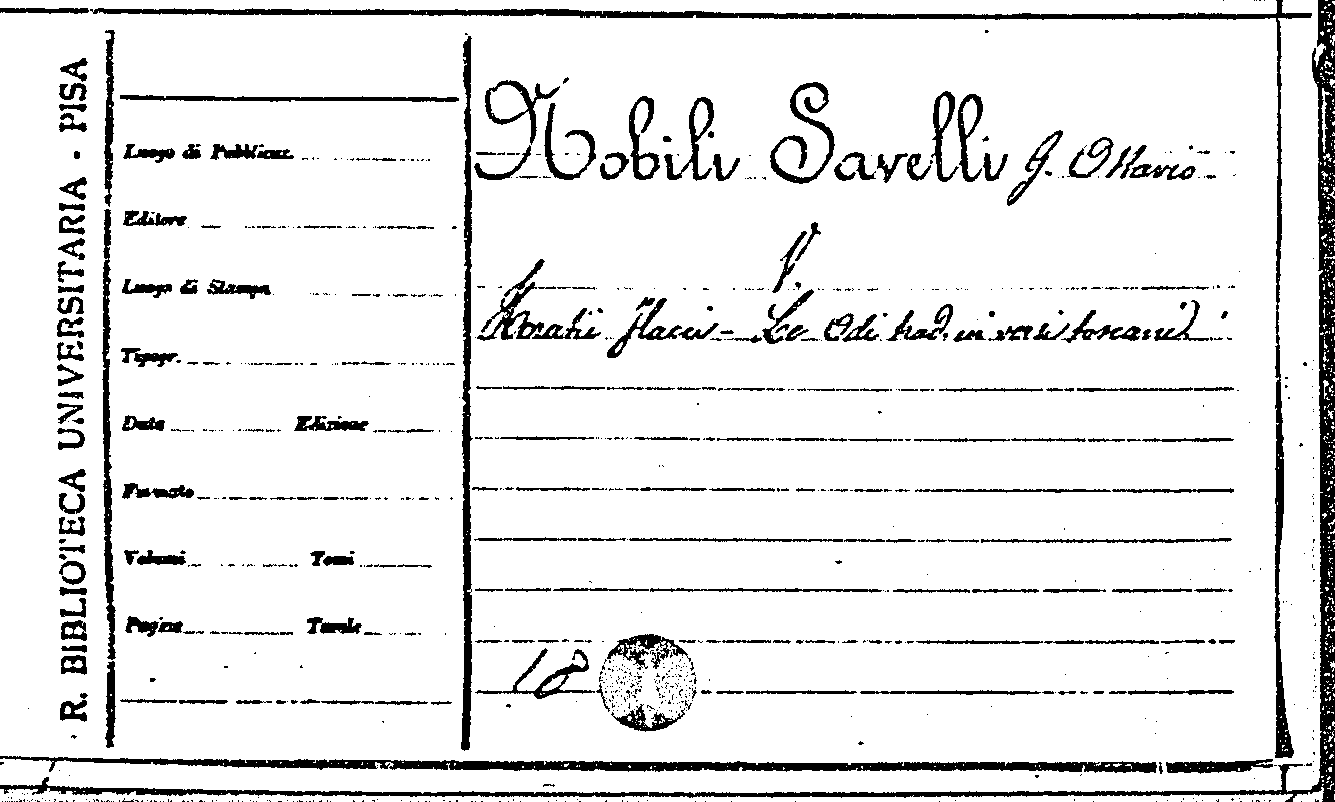 R. BIBLIOTECA UNIVERSITARIA - PISA
Luogo di Pubblicaz.
Editore
Luogo di Stampa
Tipogr.
Data Edizione
Formato
Volumi Tomi
Pagine Tavole
Nobili Savelli G. Ottavio
V.
Horatii Flacci - Le Odi trad. in versi toscani
18